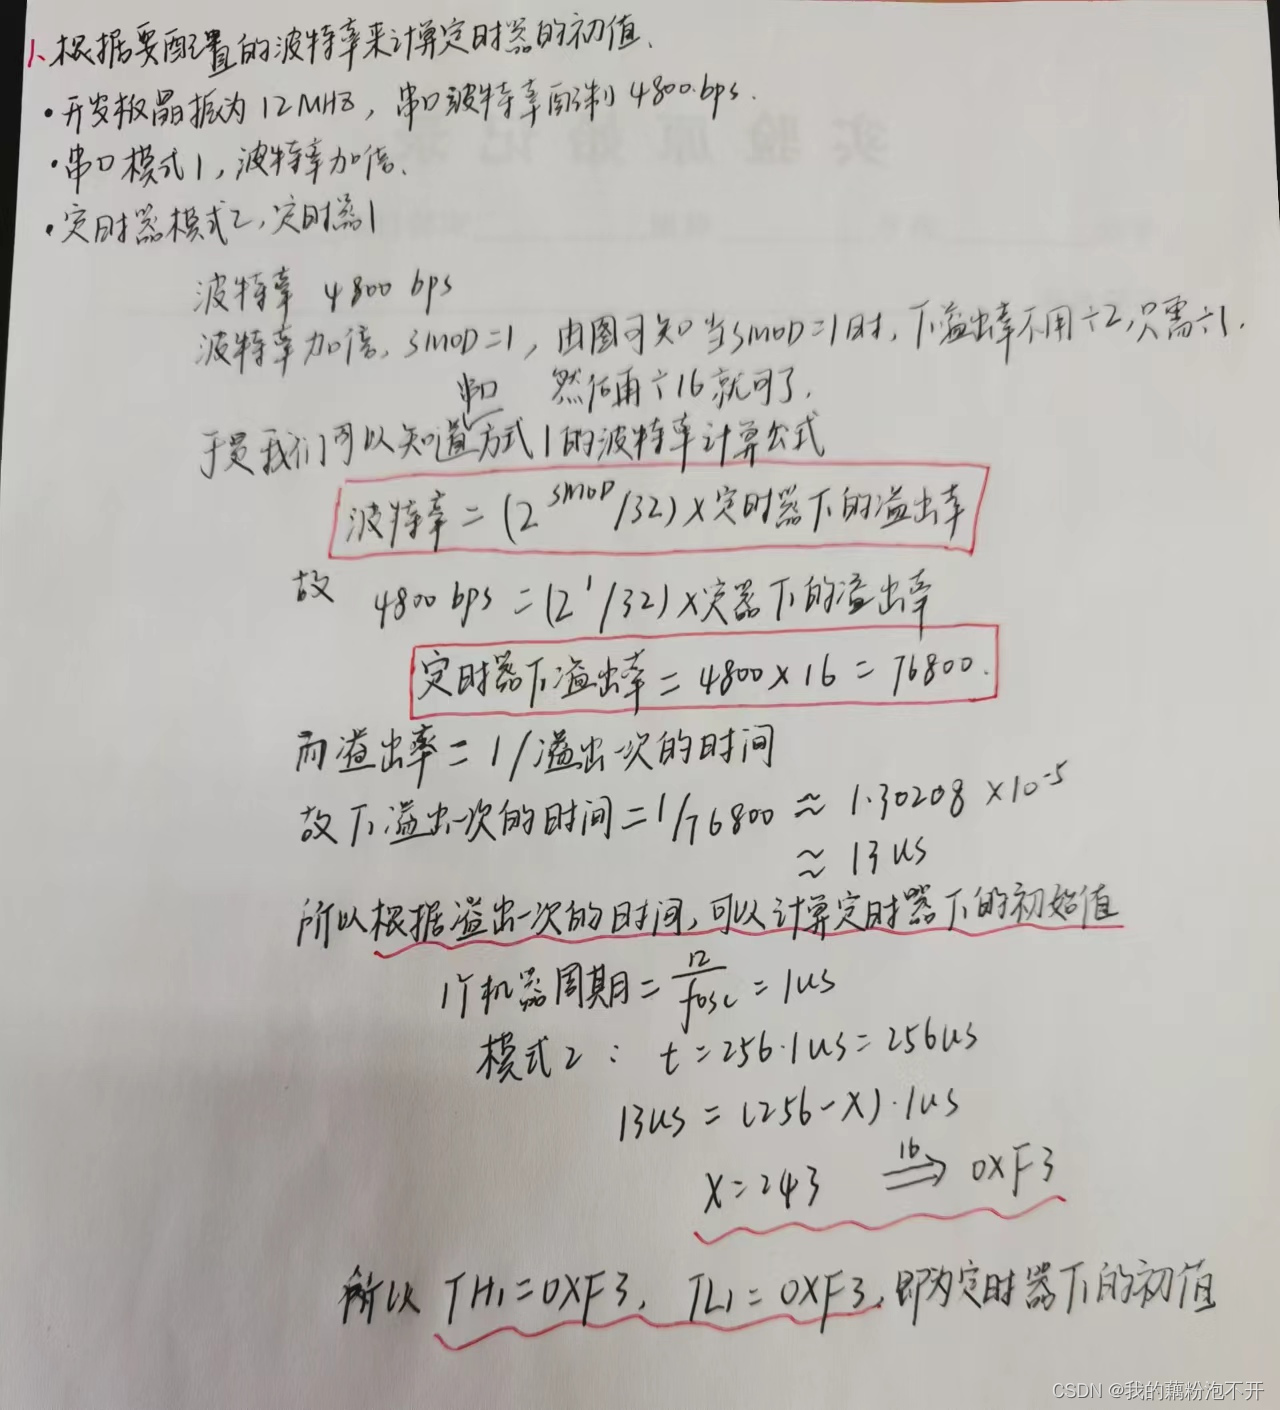 1、根据要配置的波特率来计算定时器的初值、
·开发板晶振为12MHZ，串口波特率配制4800bps.
·串口模式1，波特率加倍、
·定时器模式2，定时器1
波特率 4800 bps
波特率加倍，SMOD=1，由图可知当SMOD=1时，T1溢出率不用÷2，只需÷1，
然后再÷16就可了.
于是我们可以知道串口方式1的波特率计算公式
波特率=(2^SMOD/32)×定时器T1的溢出率
故 4800 bps=(2^1/32)×定器T1的溢出率
定时器T1溢出率=4800×16=76800.
而溢出率=1/溢出一次的时间
故T1溢出一次的时间=1/76800≈1.30208×10^-5
≈13us
所以根据溢出一次的时间，可以计算定时器T1的初始值
1个机器周期=12/fosc=1us
模式2： t=256·1us=256us
13us=(256-X)·1us
X=243 16⇒ 0XF3
所以 TH1=0XF3，TL1=0XF3，即为定时器T1的初值
实验原始记录
CSDN @我的藕粉泡不开